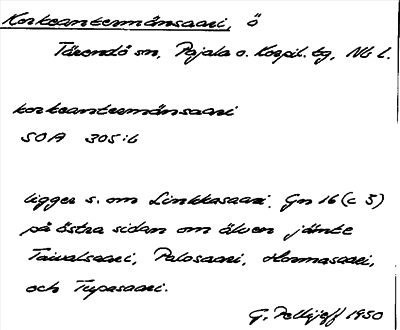 Korkeantermänsaari, ö
Tärendö sn, Pajala o. Korpil. tg, Nb l.
korkeantermänsaari
SOA 305:6
ligger s. om Linkkasaari. Gn 16 (c 5)
på östra sidan om älven jämte
Taivalsaari, Palosaari, Hormasaari,
och Tupasaari.
G. Pellijeff 1950